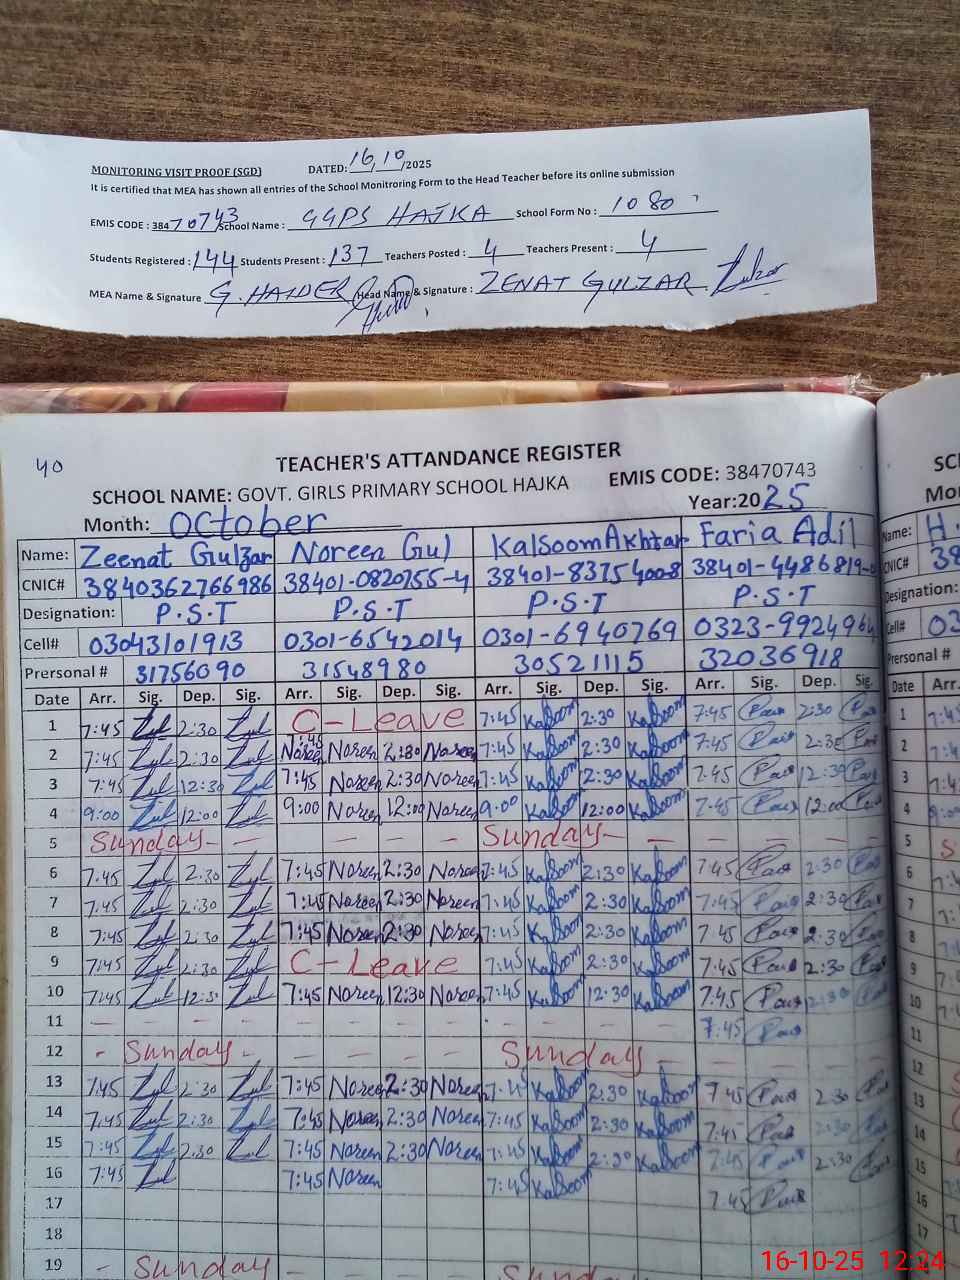 MONITORING VISIT PROOF (SGD) DATED: 16/10/2025
It is certified that MEA has shown all entries of the School Monitroring Form to the Head Teacher before its online submission
EMIS CODE : 38470743 School Name : GGPS HAJKA School Form No : 1080
Students Registered : 144 Students Present : 137 Teachers Posted : 4 Teachers Present : 4
MEA Name & Signature G. HAIDER Head Name & Signature : ZENAT GULZAR
40
TEACHER'S ATTANDANCE REGISTER
SCHOOL NAME: GOVT. GIRLS PRIMARY SCHOOL HAJKA EMIS CODE: 38470743
Month: October Year:2025
Name: Zeenat Gulzar Noreen Gul Kalsoom Akhtar Faria Adil
CNIC# 3840362766986 38401-0820755-4 38401-8375400-8 38401-4486819-
Designation: P.S.T P.S.T P.S.T P.S.T
Cell# 03043101913 0301-6542014 0301-6940769 0323-9924964
Prersonal # 31756090 31548980 30521115 32036918
Date Arr. Sig. Dep. Sig. Arr. Sig. Dep. Sig. Arr. Sig. Dep. Sig. Arr. Sig. Dep. Sig.
1 7:45 Zul 2:30 Zul C-Leave 7:45 Kalsoom 2:30 Kalsoom 7:45 2:30
2 7:45 Zul 2:30 Zul 7:45 Noreen Noreen 2:30 Noreen 7:45 Kalsoom 2:30 Kalsoom 7:45 2:30
3 7:45 Zul 12:30 Zul 7:45 Noreen 2:30 Noreen 7:45 Kalsoom 2:30 Kalsoom 7:45 12:30
4 9:00 Zul 12:00 Zul 9:00 Noreen 12:00 Noreen 9:00 Kalsoom 12:00 Kalsoom 7:45 12:00
5 Sunday - - - - - Sunday - - - - -
6 7:45 Zul 2:30 Zul 7:45 Noreen 2:30 Noreen 7:45 Kalsoom 2:30 Kalsoom 7:45 2:30
7 7:45 Zul 2:30 Zul 7:45 Noreen 2:30 Noreen 7:45 Kalsoom 2:30 Kalsoom 7:45 2:30
8 7:45 Zul 2:30 Zul 7:45 Noreen 2:30 Noreen 7:45 Kalsoom 2:30 Kalsoom 7:45 2:30
9 7:45 Zul 2:30 Zul C-Leave 7:45 Kalsoom 2:30 Kalsoom 7:45 2:30
10 7:45 Zul 12:30 Zul 7:45 Noreen 12:30 Noreen 7:45 Kalsoom 12:30 Kalsoom 7:45 2:30
11 - - - - - - - - - - - - 7:45
12 - Sunday - - - - - Sunday - - - -
13 7:45 Zul 2:30 Zul 7:45 Noreen 2:30 Noreen 7:45 Kalsoom 2:30 Kalsoom 7:45 2:30
14 7:45 Zul 2:30 Zul 7:45 Noreen 2:30 Noreen 7:45 Kalsoom 2:30 Kalsoom 7:45 2:30
15 7:45 Zul 2:30 Zul 7:45 Noreen 2:30 Noreen 7:45 Kalsoom 2:30 Kalsoom 7:45 2:30
16 7:45 Zul 7:45 Noreen 7:45 Kalsoom
17 7:45
18
19 - Sunday - - - - - Sun
Name: H.
CNIC# 38
Designation:
Cell# 03
Prersonal #
Date Arr.
1
2
3
4
5
6
7
8
9
10
11
12
13
14
15
16
17
16-10-25 12:24